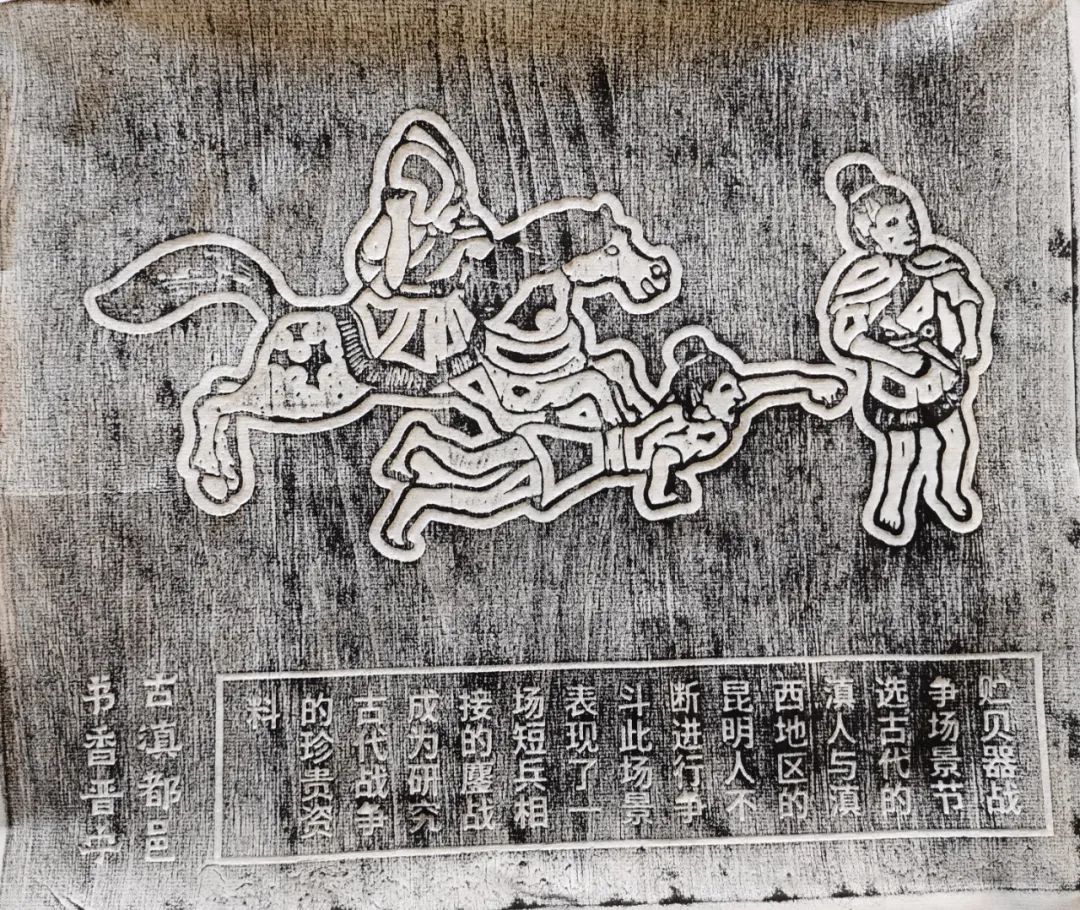 贮贝器战
争场景节
选古代的
滇人与滇
西地区的
昆明人不
断进行争
斗此场景
表现了一
场短兵相
接的鏖战
成为研究
古代战争
的珍贵资
料
古滇都邑
书香晋宁